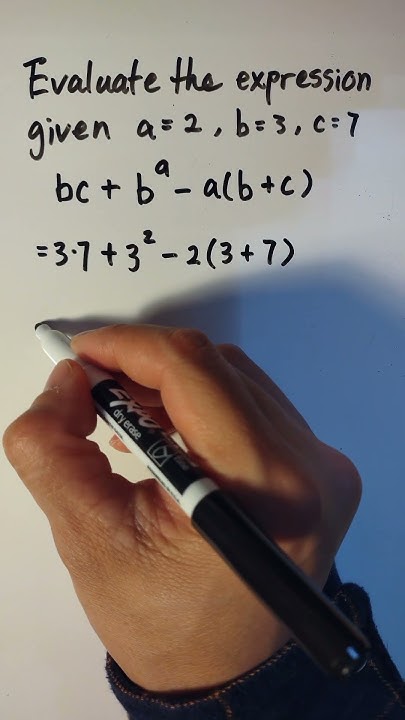 Evaluate the expression
given a = 2 , b = 3 , c = 7
bc + bᵃ − a(b + c)
= 3·7 + 3² − 2(3 + 7)
EXPO
dry erase